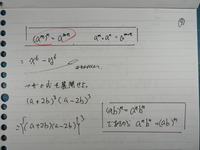 (aᵐ)ⁿ = aᵐⁿ  aᵐ・aⁿ = aᵐ⁺ⁿ
= x⁶ - y⁶
を展開せよ。
(a+2b)³(a-2b)³
= {(a+2b)(a-2b)}³
(ab)ⁿ = aⁿbⁿ
aⁿbⁿ = (ab)ⁿ